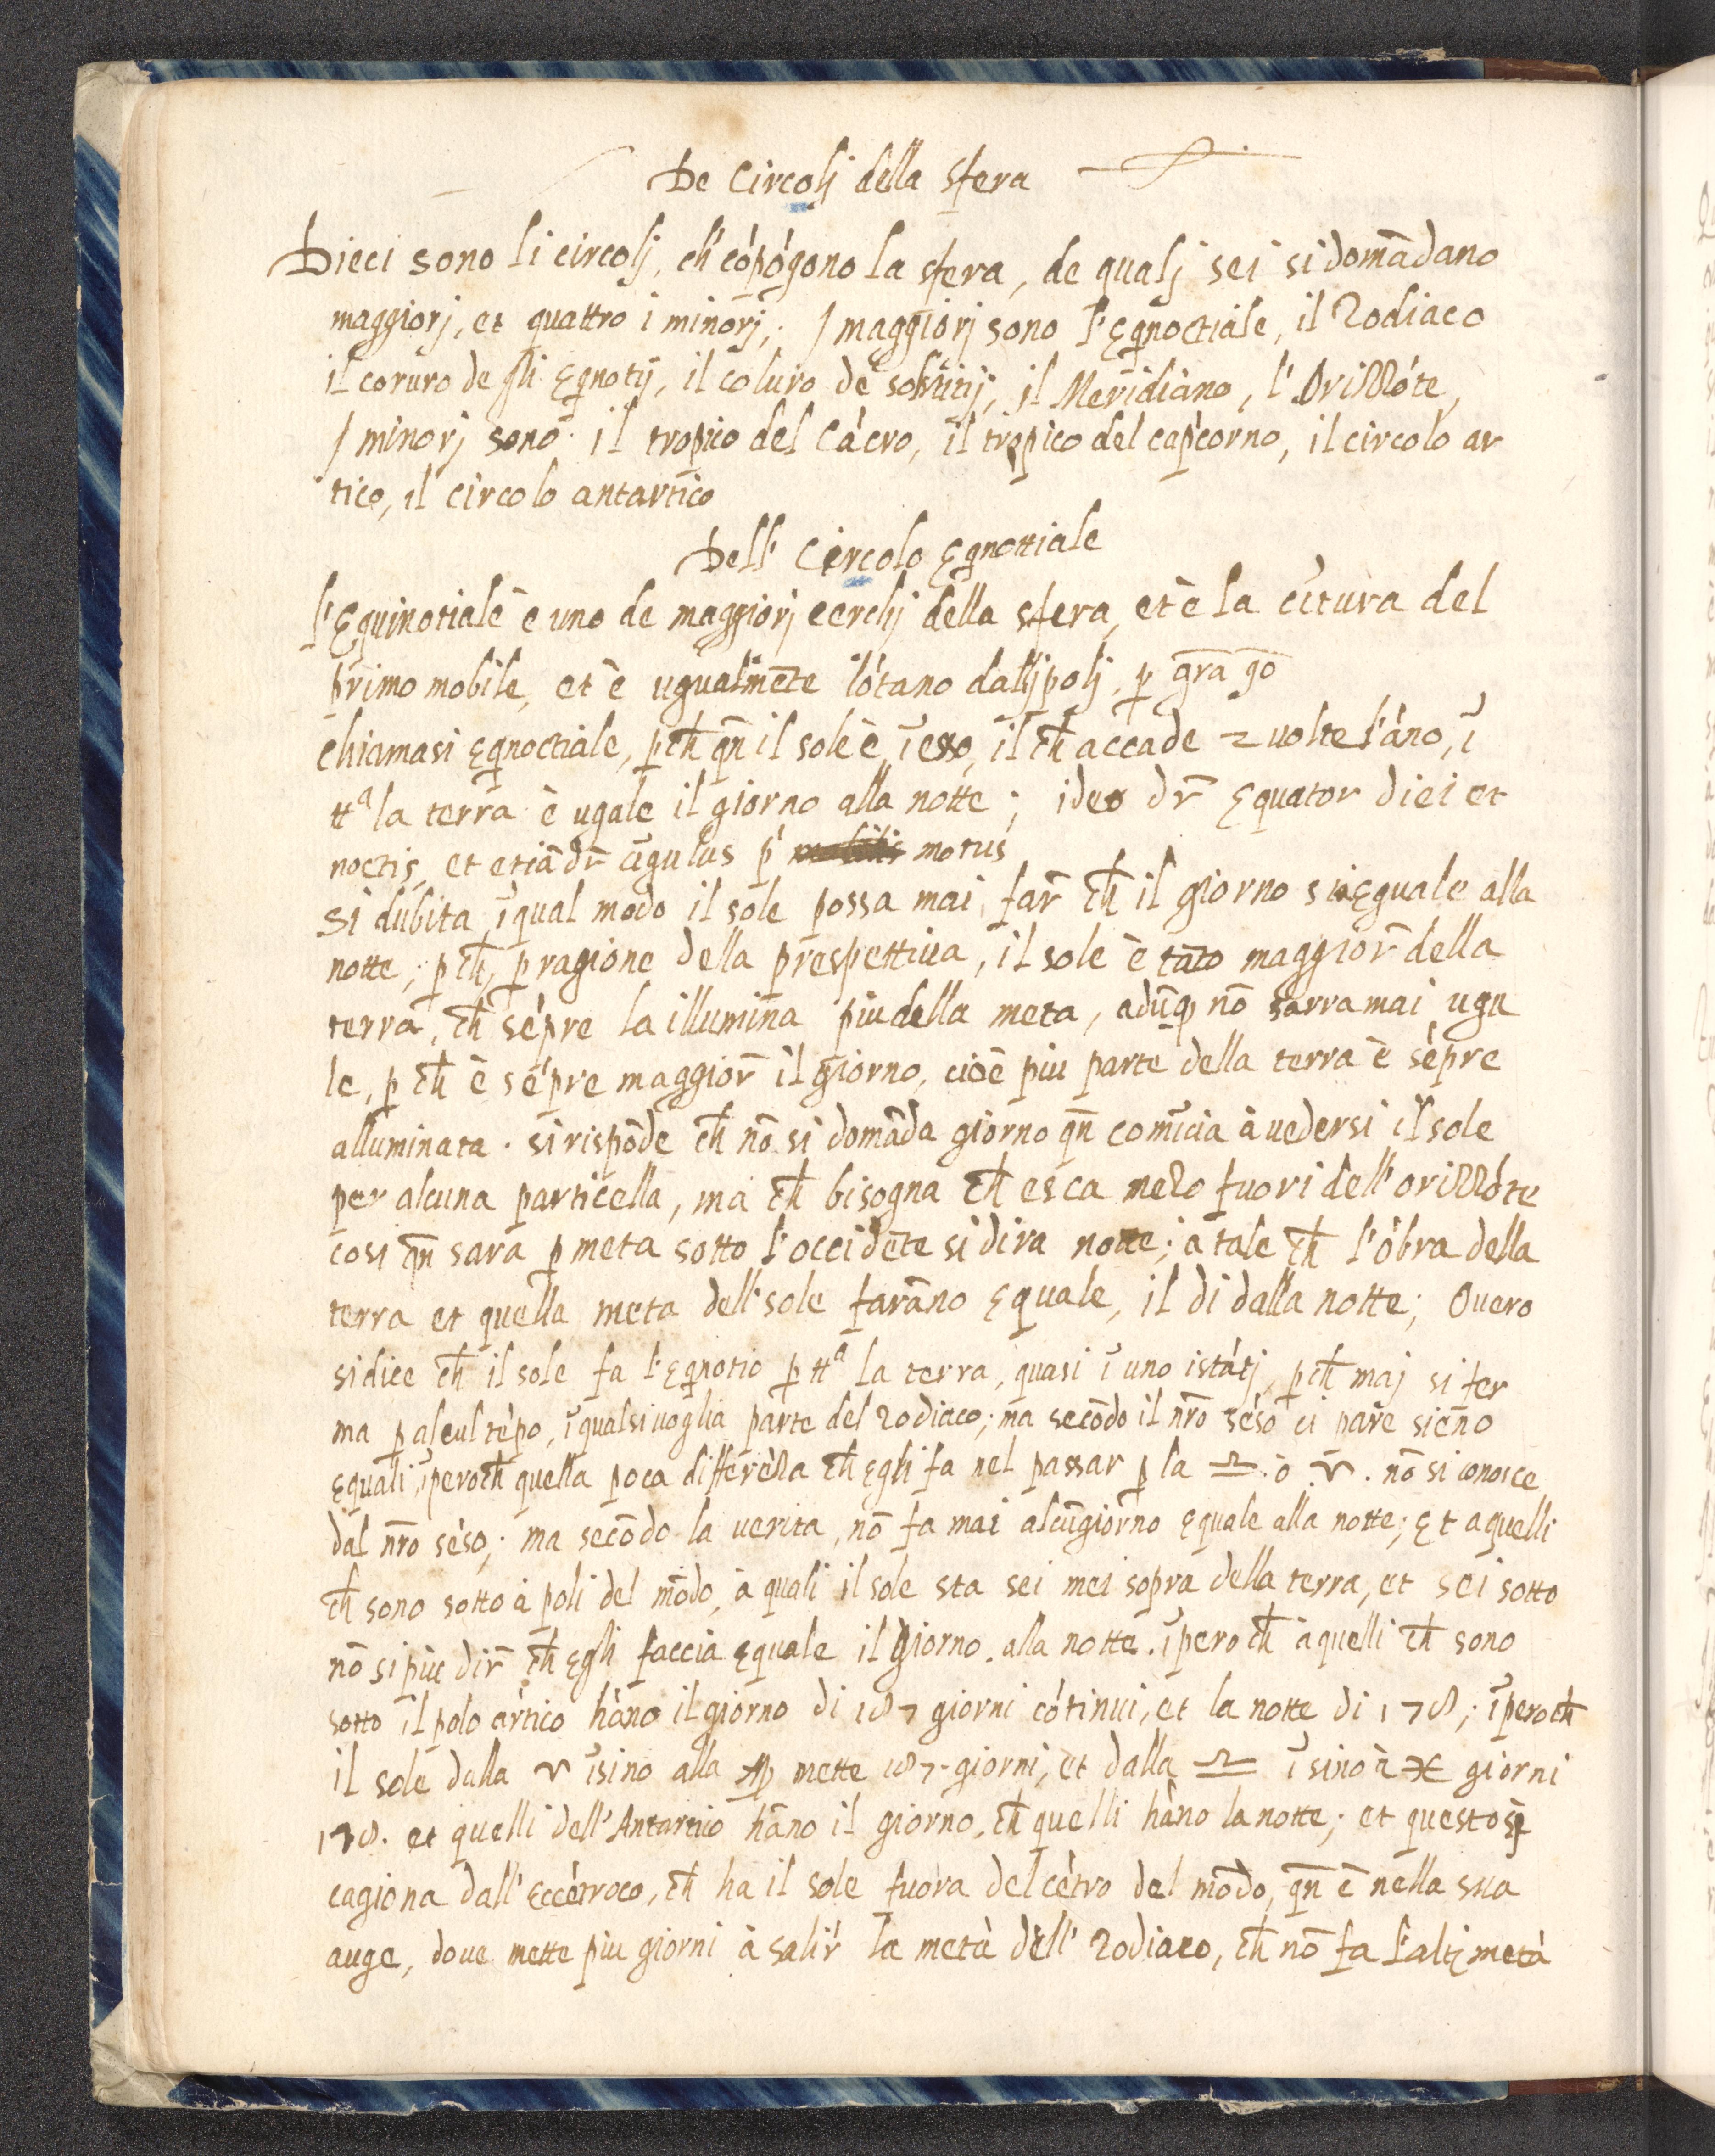 De Circolj della Sfera
Dieci sono li circolj, ch' cópógono la sfera, de qualj sei si domādano
maggiorj, et quattro i minorj; I maggiorj sono l'Eqnoctiale, il Zodiaco
il coruro degli Eqnotij, il coluro de solstitij, il Meridiano, l' Orizzóte,
I minorj sono il tropico del Cácro, il tropico del capcorno, il circolo ar
tico, il circolo antartico
Dell' Circolo Eqnottiale
l'Equinotiale è uno de maggiorj cerchj della sfera, et è la cītura del
primo mobile, et è ugualmēte lótano dallj polj, p gra go
chiamasi Eqnoctiale, pch̄ qn̄ il sole è ī esso, il ch̄ accade 2 uolte l'áno, ī
ttᵃ la terra è ugale il giorno alla notte; ideo dr̄ Equator diei et
noctis, et etiā dr̄ cīgulus p' motus
Si dubita ī qual modo il sole possa mai far̄ ch̄ il giorno sia Eguale alla
notte; pch̄, p ragione della prespettiua, il sole è tāto maggior̄ della
terra, ch̄ sépre la illumina piu della meta, adūq nō sarra mai ugu
le, p ch̄ è sépre maggior̄ il giorno, cioè piu parte della terra è sépre
alluminata. si rispōde ch̄ nō si domāda giorno qn̄ comīcia à uedersi il sole
per alcuna particella, ma ch̄ bisogna ch̄ esca mezo fuori dell' orizzóte
cosi qn̄ sara p meta sotto l'occidēte si dira notte; a tale ch̄ l'óbra della
terra et quella meta dell' sole farāno Equale, il di dalla notte; Ouero
si dice ch̄ il sole fa l'Eqnotio p ttᵃ la terra, quasi ī uno istátj, pch̄ maj si fer
ma p alcul tépo, ī qualsiuoglia parte del zodiaco; ma secōdo il nr̄o séso ci pare sieno
Equali, īperoch̄ quella poca differéza ch̄ Egli fa nel passar p la ♎. ò ♈. nō si conosce
dal nr̄o séso; ma secōdo la uerita, nō fa mai alcūgiorno Equale alla notte; Et a quelli
ch̄ sono sotto à poli del mōdo, à quali il sole sta sei mei sopra della terra, et sei sotto
nō si piu dir̄ ch̄ Egli faccia Equale il giorno. alla notte. īpero ch̄ à quelli ch̄ sono
sotto il polo artico háno il giorno di 187 giorni cótinui, et la notte di 178; īperoch̄
il sole dalla ♈ īsino alla ♍ mette 187. giorni, et dalla ♎ īsino à ♓ giorni
178. et quelli dell' Antartico hāno il giorno, ch̄ quelli hāno la notte; et questo si
cagiona dall' Eccétroco, ch̄ ha il sole fuora del cétro del mōdo, qn̄ è nella sua
auge, doue mette piu giorni à salir la metà dell' zodiaco, ch̄ nō fa l'altᵃ metà